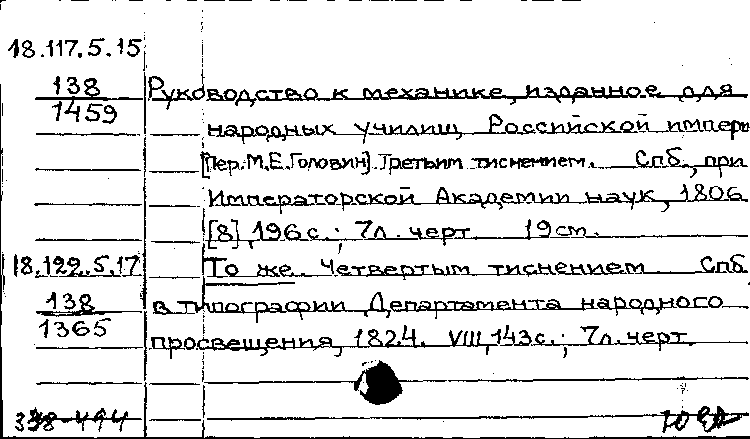 18.117.5.15
138 Руководство к механике, изданное для
1459
народных училищ Российской импер
[Пер. М.Е. Головин]. Третьим тиснением. Спб., при
Императорской Академии наук, 1806
[8], 196 с.; 7 л. черт. 19 см.
18.122.5.17 То же. Четвертым тиснением Спб
138 в типографии Департамента народного
1365 просвещения, 1824. VIII, 143 с.; 7 л. черт.